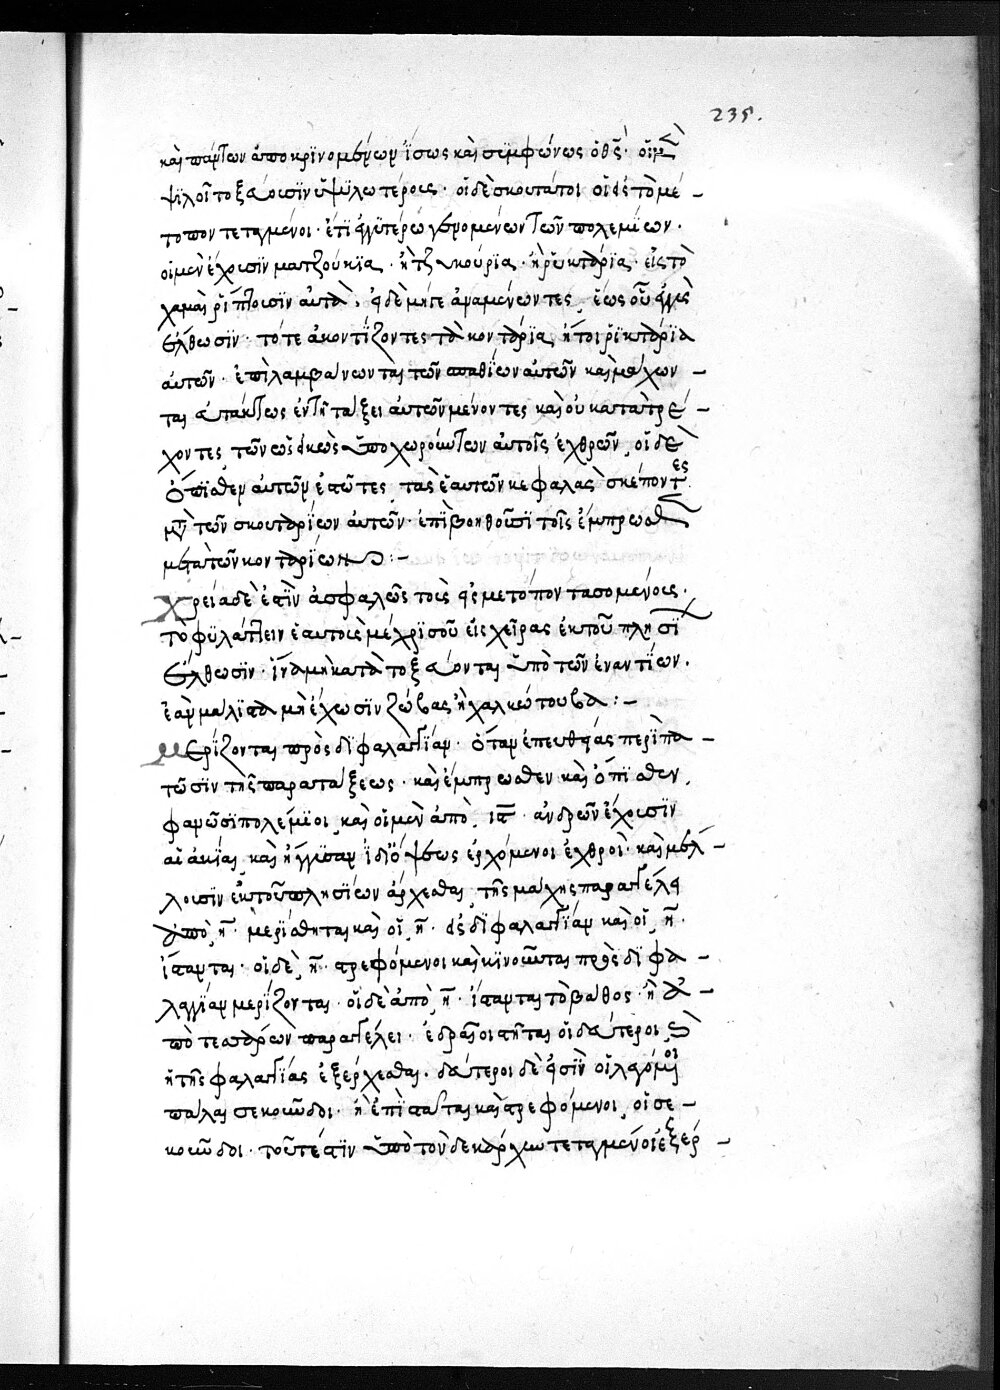 235.
καὶ πάντων ἀποκρινομένων ἴσως καὶ συμφώνως ὁ θς̄· οἱ μὲν
ψιλοὶ τοξεύουσιν ὑψιλωτέρους· οἱ δὲ σκουτάτοι οἱ εἰς τὸ μέ-
τοπον τεταγμένοι· ἔτι ἐγγυτέρω γενομένων τῶν πολεμίων·
οἱ μὲν ἔχουσιν ματζούκια· ἢ τζικούρια· ἢ ῥικτάρια· εἰς τὸ
χαμαὶ ῥίπτουσιν αὐτά· εἰ δὲ μήγε ἀναμένοντες, ἕως οὗ ἐγγὺς
ἔλθωσιν· τότε ἀκοντίζοντες τὰ κοντάρια, ἤτοι ῥικτάρια
αὐτῶν· ἐπιλαμβάνωνται τῶν σπαθίων αὐτῶν καὶ μάχων-
ται εὐτάκτως ἐν τῇ τάξει αὐτῶν μένοντες καὶ οὐ κατατρέ-
χοντες τῶν ὡς εἰκὼς ὑποχωρούντων αὐτοῖς ἐχθρῶν, οἱ δὲ
ὄπισθεν αὐτῶν ἑστῶτες, τὰς ἑαυτῶν κεφαλὰς σκέποντες
μετὰ τῶν σκουταρίων αὐτῶν· ἐπιβοηθοῦσι τοῖς ἔμπρωσθεν
μετὰ τῶν κονταρίων :-
Χρεία δὲ ἐστὶν ἀσφαλῶς τοὺς εἰς μετόπον τασομένους·
τὸ φυλάττειν ἑαυτοὺς μέχρις οὗ εἰς χεῖρας ἐκ τοῦ πλησίον
ἔλθωσιν· ἵνα μὴ κατατοξεύονται ὑπὸ τῶν ἐναντίων·
ἐὰν μάλιστα μὴ ἔχωσιν ζάβας ἢ χαλκώτουβα :-
Μερίζονται πρὸς διφαλαγγίαν· ὅταν ἐπευθείας περιπα-
τῶσιν τῆς παρατάξεως· καὶ ἔμπρωσθεν καὶ ὄπισθεν,
φανῶσι πολέμιοι, καὶ οἱ μὲν ἀπὸ, ις̄· ἀνδρῶν ἔχουσιν
αἱ ἀκίαι, καὶ ἤγγισαν ἰδι' ὄψεως ἐρχόμενοι ἐχθροί· καὶ μέλ-
λουσιν ἐκ τοῦ πλησίων ἄρχεσθαι, τῆς μάχης παραγγέλει
ἀπὸ, η̄· μερίσθηται καὶ οἱ, η̄· εἰς διφαλαγγίαν καὶ οἱ, η̄·
ἵστανται· οἱ δὲ, η̄· στρεφόμενοι καὶ κινοῦνται πρὸς διφα-
λαγγίαν μερίζονται· οἱ δὲ ἀπὸ, η̄· ἵστανται τὸ βάθος· ἢ ἀ-
πὸ τεσσάρων παραγγέλει· ἑδραῖοι στῆται οἱ δεύτεροι,
ἢ τῆς φαλαγγίας ἐξέρχεσθαι· δεύτεροι δὲ εἰσὶν οἱ λεγόμενοι
πάλαι σεκοῦνδοι· ἢ ἐπιστάται καὶ στρεφόμενοι, οἱ σε-
κοῦνδοι· τοῦτέστιν ὑπὸ τὸν δεκάρχων τεταγμένοι ἐξέρ-